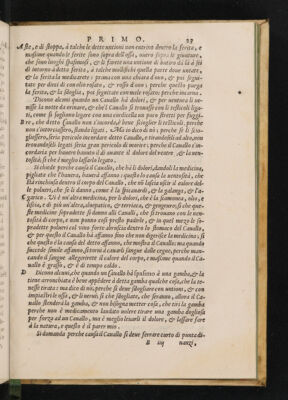 PRIMO.
A ste, e di stoppa, à talche le dette untioni non entrino dentro la ferita, e
massime quando la ferita è sopra dell'osso, overo sopra le giunture,
che sono luoghi spasimosi, & li farete una untione di butiro da lì à sei
dì intorno à detta ferita, à talche mollifichi questa parte dove untate,
& la ferita la medicarete prima con una chiara d'ovo, & poi segui-
tate per dieci dì con olio rosato, & rosso d'ovo; perche questo purga
la ferita, & la stoglia, poi seguitate con mele rosato perche incarna.
Dicono alcuni quando un Cavallo hà dolori, & per ventura li ve-
nisse la notte à orinare, & che'l Cavallo si travagliasse, e si buttasse
in terra, e si voltasse, & tirasse delle gambe di dietro per fuggi-
B re, che detto Cavallo non s'incordò, & deve scioglier li testicoli, perche
non s'intorciassero, stando legati. Ma io dico di nò; perche se li scio-
gliessero, seria pericolo incordare detto Cavallo, e tirandosi ad alto, non
trovandosili legati seria gran pericolo di morire: perche il Cavallo s'in-
cordarà per havere bavuto il di avante il dolore del ventre, & la ven-
tosità, si che è meglio lassarlo legato.
Si chiede perche causa il Cavallo, che hà li dolori, dandoli la medicina,
pigliata che l'haverà, haverà affanno: questo lo causa la ventosità, che
sta rinchiusa dentro il corpo del Cavallo, che nò lassa uscir il calore
de polmoni, che se li danno, come è la scamonèa, & la galanga, & l'a-
C garico. Vi è un'altra medicina, per li dolori, che è la scamonea, olio, e
bieta, e di più un'altra, diapante, & teriaca, & gengevero, sì che que-
medicine sopradette si danno all Cavalli, che si trovano con le ven-
tosità di corpo, e non ponno così presto padirle, & in quel mezo le so-
pradette polveri col vino forte abruscia dentro lo stomaco del Cavallo,
& per questo il Cavallo hà affanno fino che non digerisce la medicina; sì
che questa è la causa del detto affanno, che mostra il Cavallo; ma quando
succede simile affanno, si tiri à cavarli sangue dalle cegne, perche man-
cando il sangue allegerirete il calore del corpo, e massime quando il Ca-
vallo è grasso, & è di tempo caldo.
D Dicono alcuni, che quando un Cavallo hà spasimo à una gamba, & la
tiene arronchiata è bene appedere à detta gamba qualche cosa, che la te-
nesse tirata: ma dico di nò, perche si deve sbogliare con untioni, & con
impiastri le ossa, & li nervi, sì che sbogliate, che seranno, allora il Ca-
vallo stenderà la gamba, & non bisogna metter cosa, che tiri la gamba
perche non è medicamento laudato volere tirare una gamba dogliosa
per forza ad un Cavallo, ma è meglio levarli il dolore, & lassare fare
à la natura, e questo è il parer mio.
Si domanda perche causa il Cavallo si deve ferrare curto di punta di-
B iiij nanzi,